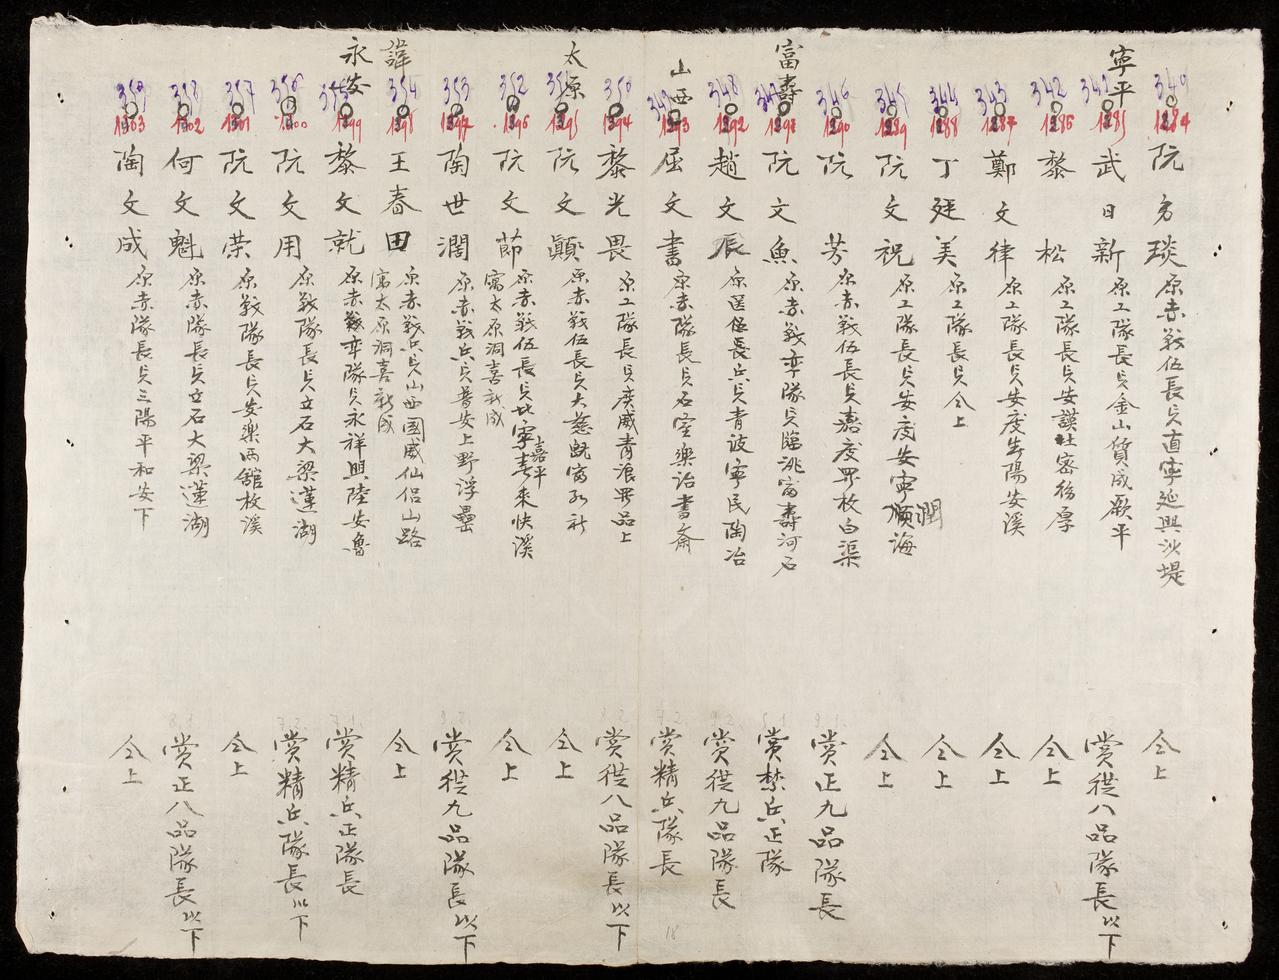 340
1284
阮 名 琰 原赤戰伍長兵直寧延興沙堤
仝上
寧平
341
1285
武 日 新 原工隊長兵金山質成厥平
賞從八品隊長以下
342
1286
黎 松 原工隊長兵安謨杜密務厚
仝上
343
1287
鄭 文 律 原工隊長兵安度生陽安溪
仝上
344
1288
丁 廷 美 原工隊長兵仝上
仝上
345
1289
阮 文 祝 原工隊長兵安度安寧順海
潤
仝上
346
1290
阮 芳 原赤戰伍長兵嘉度罘枚白渠
賞正九品隊長
富壽
347
阮 文 魚 原赤戰率隊兵臨洮富壽河石
賞禁兵正隊
348
1292
趙 文 辰 原選伍長兵兵青波寧民陶冶
賞從九品隊長
山西
349
1293
屈 文 書 原赤隊長兵石室樂治書齋
賞精兵隊長
350
1294
黎 光 畏 原工隊長兵廣威青浪罘品上
賞從八品隊長以下
太原
351
1295
阮 文 顛 原赤戰伍長兵大慈
仝上
352
1296
阮 文 節 原赤戰伍長兵北寧壽來快溪
嘉平
寓太原洞喜新成
仝上
353
1297
陶 世 潤 原赤戰兵兵普安上野浮壘
賞從九品隊長以下
諱
354
1298
王 春 田 原赤戰兵兵山西國威仙侶山路
寓太原洞喜新成
仝上
永安
355
1299
黎 文 就 原赤戰率隊兵永祥興陸安魯
賞精兵正隊長
356
1300
阮 文 用 原戰隊長兵立石大梁蓮湖
賞精兵隊長以下
357
1301
阮 文 榮 原戰隊長兵安樂丙館枚溪
仝上
358
1302
何 文 魁 原赤隊長兵立石大梁蓮湖
賞正八品隊長以下
359
1303
陶 文 成 原赤隊長兵三陽平和安下
仝上
18